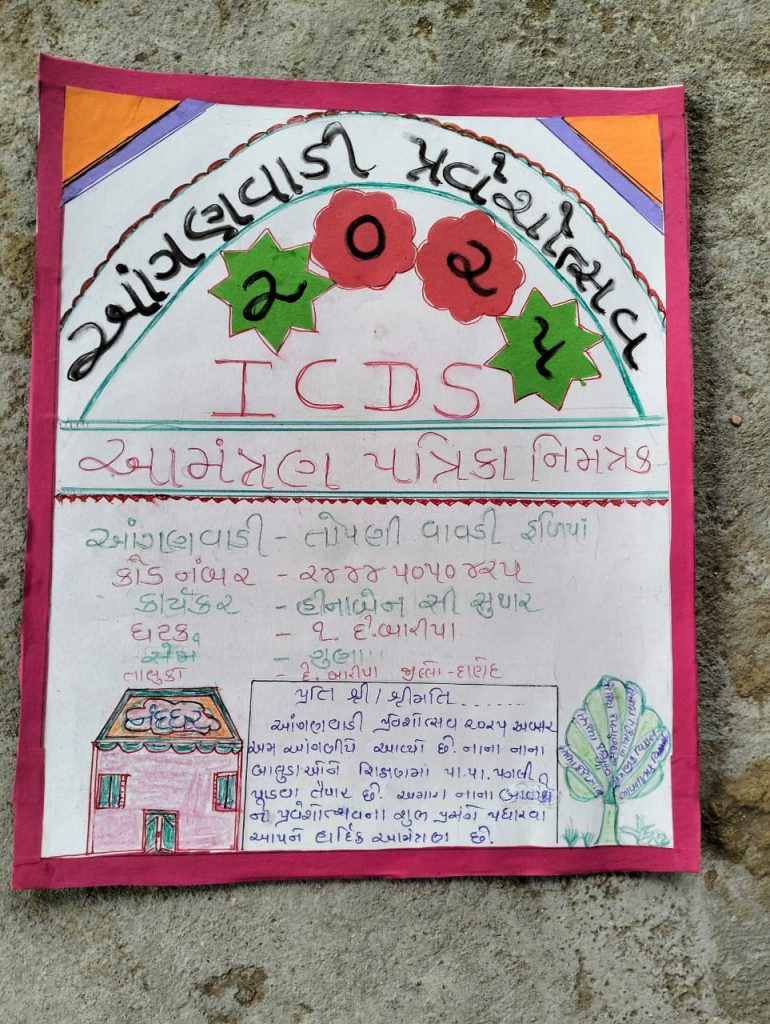 આંગણવાડી પ્રવેશોત્સવ
૨૦૨૫
ICDS
આમંત્રણ પત્રિકા નિમંત્રક
આંગણવાડી - તોપણી વાવડી ફળિયાં
કોડ નંબર - ૨૪૪૪૫૦૫૦૪૨૫
કાર્યકર - હીનાબેન સી સુથાર
ઘટક - ૧. દે.બારીયા
સેજા - ગુણા
તાલુકા - દે. બારીયા જીલ્લો - દાહોદ
નંદઘર
પ્રતિ શ્રી / શ્રીમતિ .......
આંગણવાડી પ્રવેશોત્સવ ૨૦૨૫ અવસર
અમ આંગણીયે આવ્યો છે. નાના નાના
બાલુડાઓને શિક્ષણમાં પા.પા. પગલી
પાડવા તૈયાર છે. અમારા નાના
નો પ્રવેશોત્સવના શુભ પ્રસંગે પધારવા
આપને હાર્દિક આમંત્રણ છે.